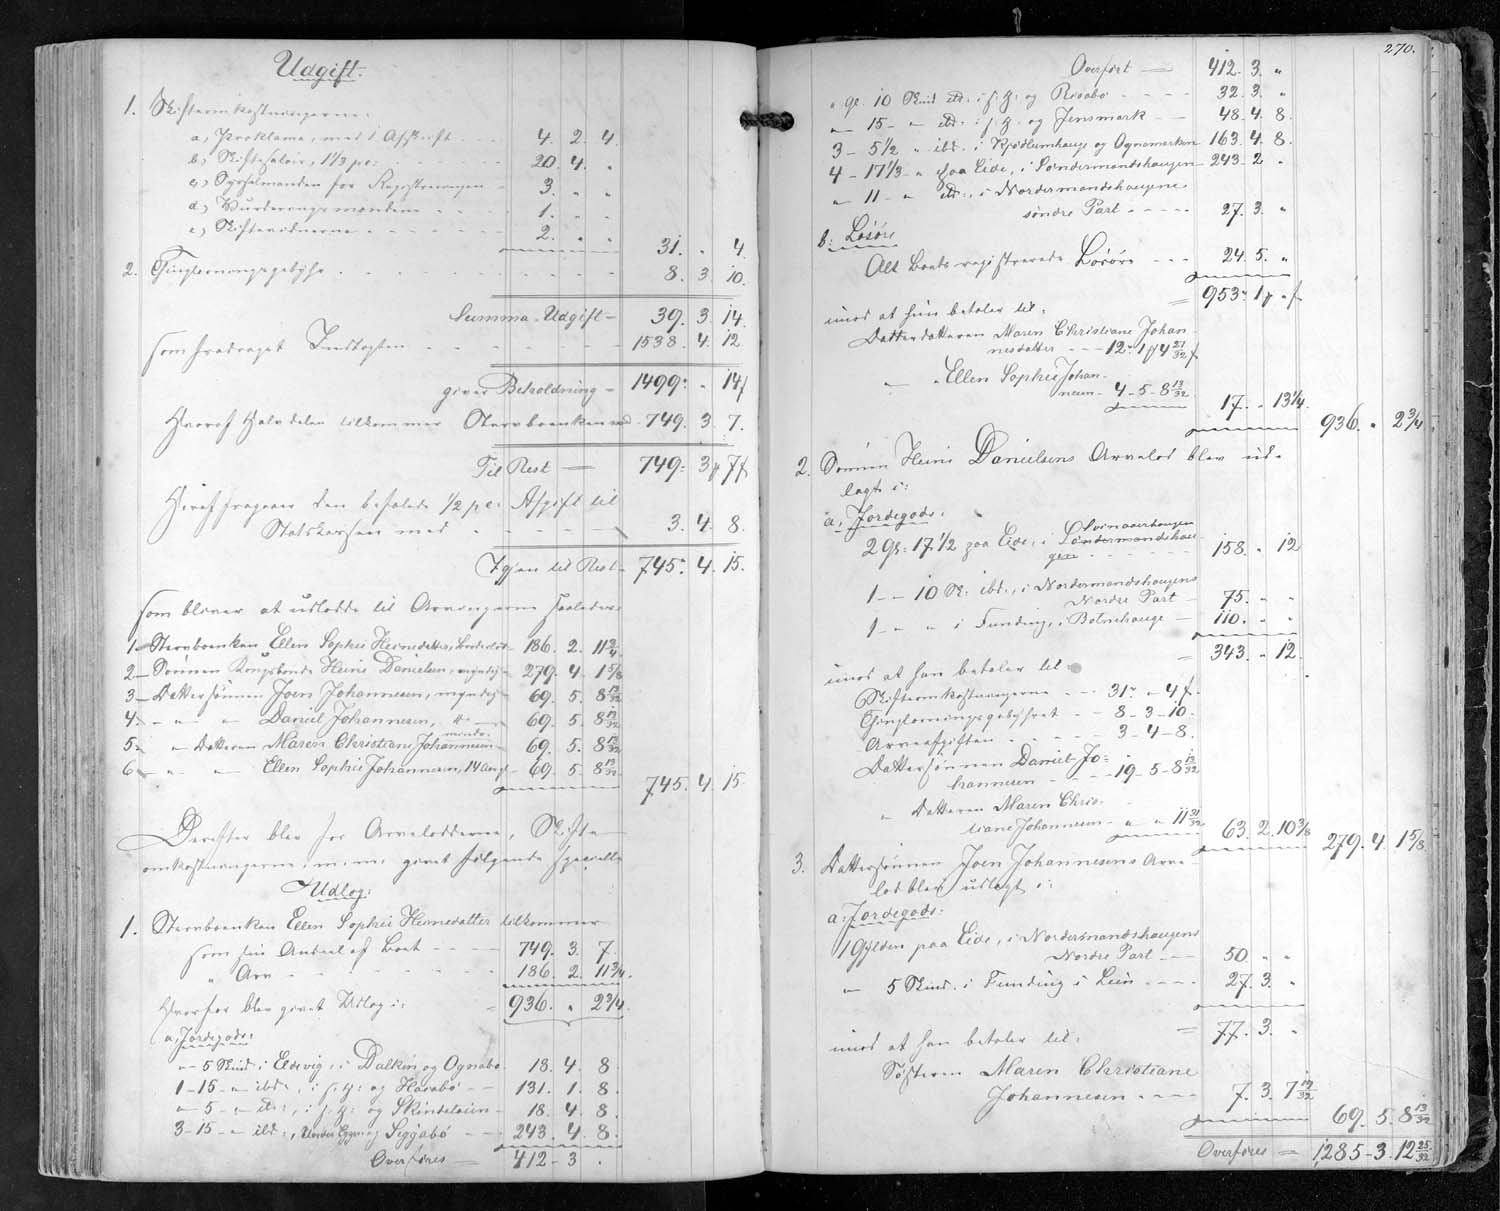 Udgift.
1. Skifteomkostningerne:
a, Proklama, med i Afskrift 4. 2. 4.
b, Skiftesalair, 1 1/3 pc: 20. 4. „
c, Sysselmanden for Registreringen 3. „ „
d, Vurderingsmændene 1. „ „
e, Skiftevidnerne 2. „ „
31. „ 4.
2. Thinglæsningsgebyhr 8. 3. 10.
Summa Udgift 39. 3. 14.
som fradraget Indtægten 1538. 4. 12
giver Beholdning 1499: „ 14ſ
Hvoraf Halvdelen tilkommer Stervboenken med 749. 3. 7.
Til Rest 749: 3ɟ 7ſ
Heraf fragaaer den befalede 1/2 pc: Afgift til
Statskassen med 3. 4. 8.
Igjen til Rest 745. 4. 15.
som bliver at udlodde til Arvingerne saaledes:
1 Stervboenken Ellen Sophie Heinesdatter, Broderlod 186. 2. 11 3/4
2 Sønnen Kongsbonde Heini Danielsen, myndig 279. 4. 1 5/8
3 Dattersønnen Joen Johannesen, myndig 69. 5. 8 13/32
4. „ „ Daniel Johannesen, 69. 5. 8 13/32
5. „ Datteren Maren Christiane Johannesen 69. 5. 8 13/32
6 „ „ Ellen Sophie Johannesen, 14 Aar 69. 5. 8 13/32
745. 4. 15.
Derefter blev for Arvelodderne, Skifte-
omkostningerne m: m: gjort følgende specielle
Udlog:
1. Stervboenken Ellen Sophie Heinesdatter tilkommer
som sin Andeel af Boet 749. 3. 7.
„ Arv 186. 2. 11 3/4.
Hvorfor blev gjort Udlog i: 936. „ 2 3/4.
a, Jordegods:
„ 5 Skind i Eldevig, i Dalkin og Ognabø 18. 4. 8.
1 - 15 - „ ibd:, i s. H: og Hasabø 131. 1. 8.
„ - 5 - „ itd:, i s. H: og Skindetoien 18. 4. 8.
3 - 15 - „ ibd:, Under Eggen og Siggabø 243. 4. 8.
Overføres 412 - 3 .
270.
Overført 412. 3. „
„ Gl. 10 Skind itd: i s. H: og Risabø 32. 3. „
„ 15 - „ itd: i s. H: og Jensmark 48. 4. 8.
3 - 5 1/2 „ ibd. i Kjødlumhauge og Ognamarken 163. 4. 8.
4 - 17 1/3 - „ paa Eide, i Søndermandshaugen 243 - 2 „
„ 11 - „ itd:, i Nordermandshaugens
søndre Part 27. 3. „
b: Løsøre
Alt Boets registrerede Løsøre 24. 5. „
= 953. 1ɟ „ ſ
imod at hun betaler til:
Datterdatteren Maren Christiane Johan-
nesdatter 12. 1ɟ 4 21/32 ſ
„ Ellen Sophie Johan-
nesen 4 - 5 - 8 19/32
17. „ 13 1/4. 936. „ 2 3/4
2. Sønnen Heine Danielsens Arvelod blev ud-
lagt i:
a, Jordegods:
2 Gl: 17 1/2 paa Eide, i Svinaaerhaugen
Søndermandshau-
gen 158. „ 12
1 - - 10 Sk: ibd., i Nordermandshaugens
Nordre Part 75. „ „
1 - „ „ i Funding, i Botnehauge 110. „ „
= 343. „ 12.
imod at han betaler til:
Skifteomkostningerne 31. „ 4ſ.
Thinglæsningsgebyhret 8 - 3 - 10.
Arveafgiften 3 - 4 - 8.
Dattersønnen Daniel Jo-
hannesen 19 - 5 - 8 13/32
„ Datteren Maren Chris-
tiane Johannesen „ „ 11 31/32
63. 2. 10 3/8 279. 4. 1 5/8.
3. Dattersønnen Joen Johannesens Arve-
lod blev udlagt i:
a: Jordegods:
1 Gylden paa Eide, i Nordermandshaugens
Nordre Part 50. „ „
„ 5 Skind i Funding i Leiin 27. 3. „
= 77. 3. „
imod at han betaler til:
Søsteren Maren Christiane
Johannesen 7. 3. 7 19/32
69. 5. 8 13/32
Overføres = 1285 - 3. 12 25/32